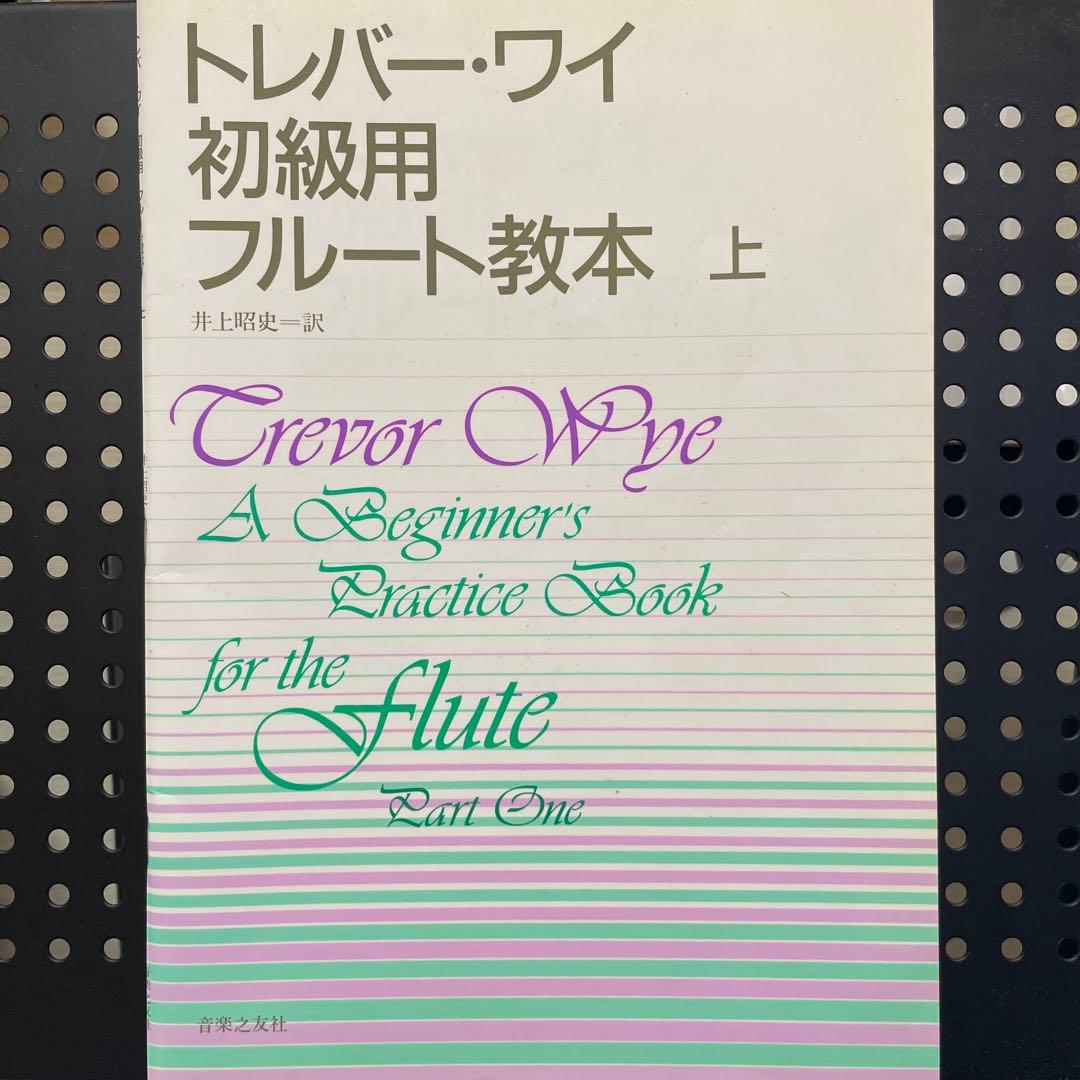 トレバー・ワイ
初級用
フルート教本 上
井上昭史＝訳
Trevor Wye
A Beginner's
Practice Book
for the
flute
Part One
音楽之友社